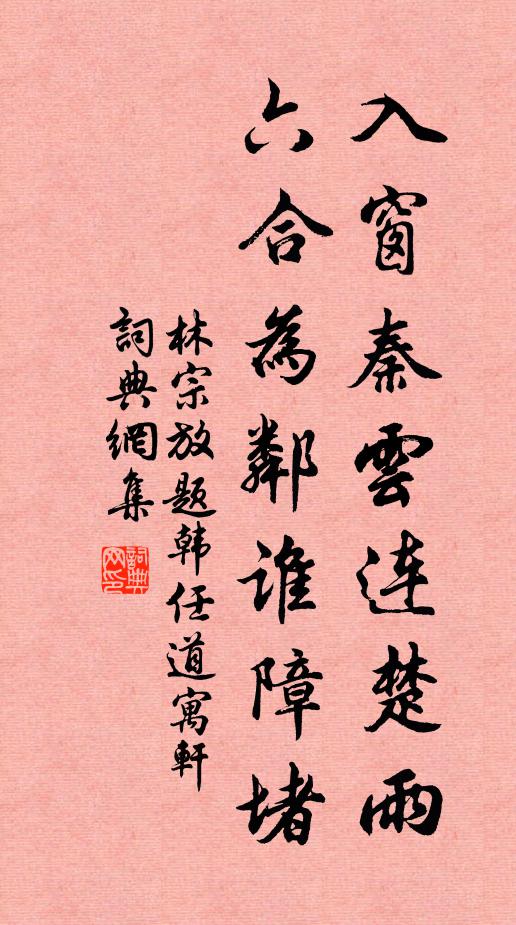 入窗秦雲連楚雨
六合為鄰誰障堵
林宗放題韩任道寓軒
詞典網集
詞典网印